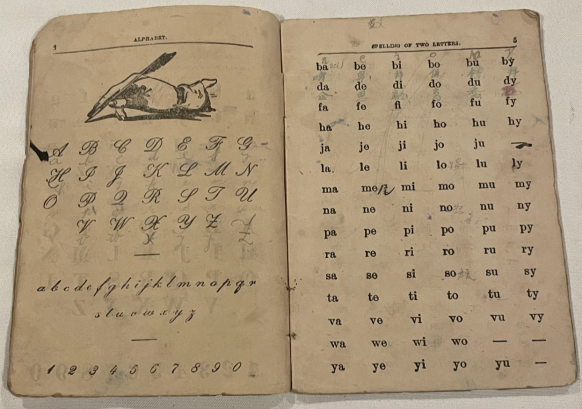 4
ALPHABET.
A B C D E F G
H I J K L M N
O P Q R S T U
V W X Y Z
a b c d e f g h i j k l m n o p q r
s t u v w x y z
1 2 3 4 5 6 7 8 9 0
SPELLING OF TWO LETTERS. 5
ba be bi bo bu by
da de di do du dy
fa fe fi fo fu fy
ha he hi ho hu hy
ja je ji jo ju —
la le li lo lu ly
ma me mi mo mu my
na ne ni no nu ny
pa pe pi po pu py
ra re ri ro ru ry
sa se si so su sy
ta te ti to tu ty
va ve vi vo vu vy
wa we wi wo — —
ya ye yi yo yu —